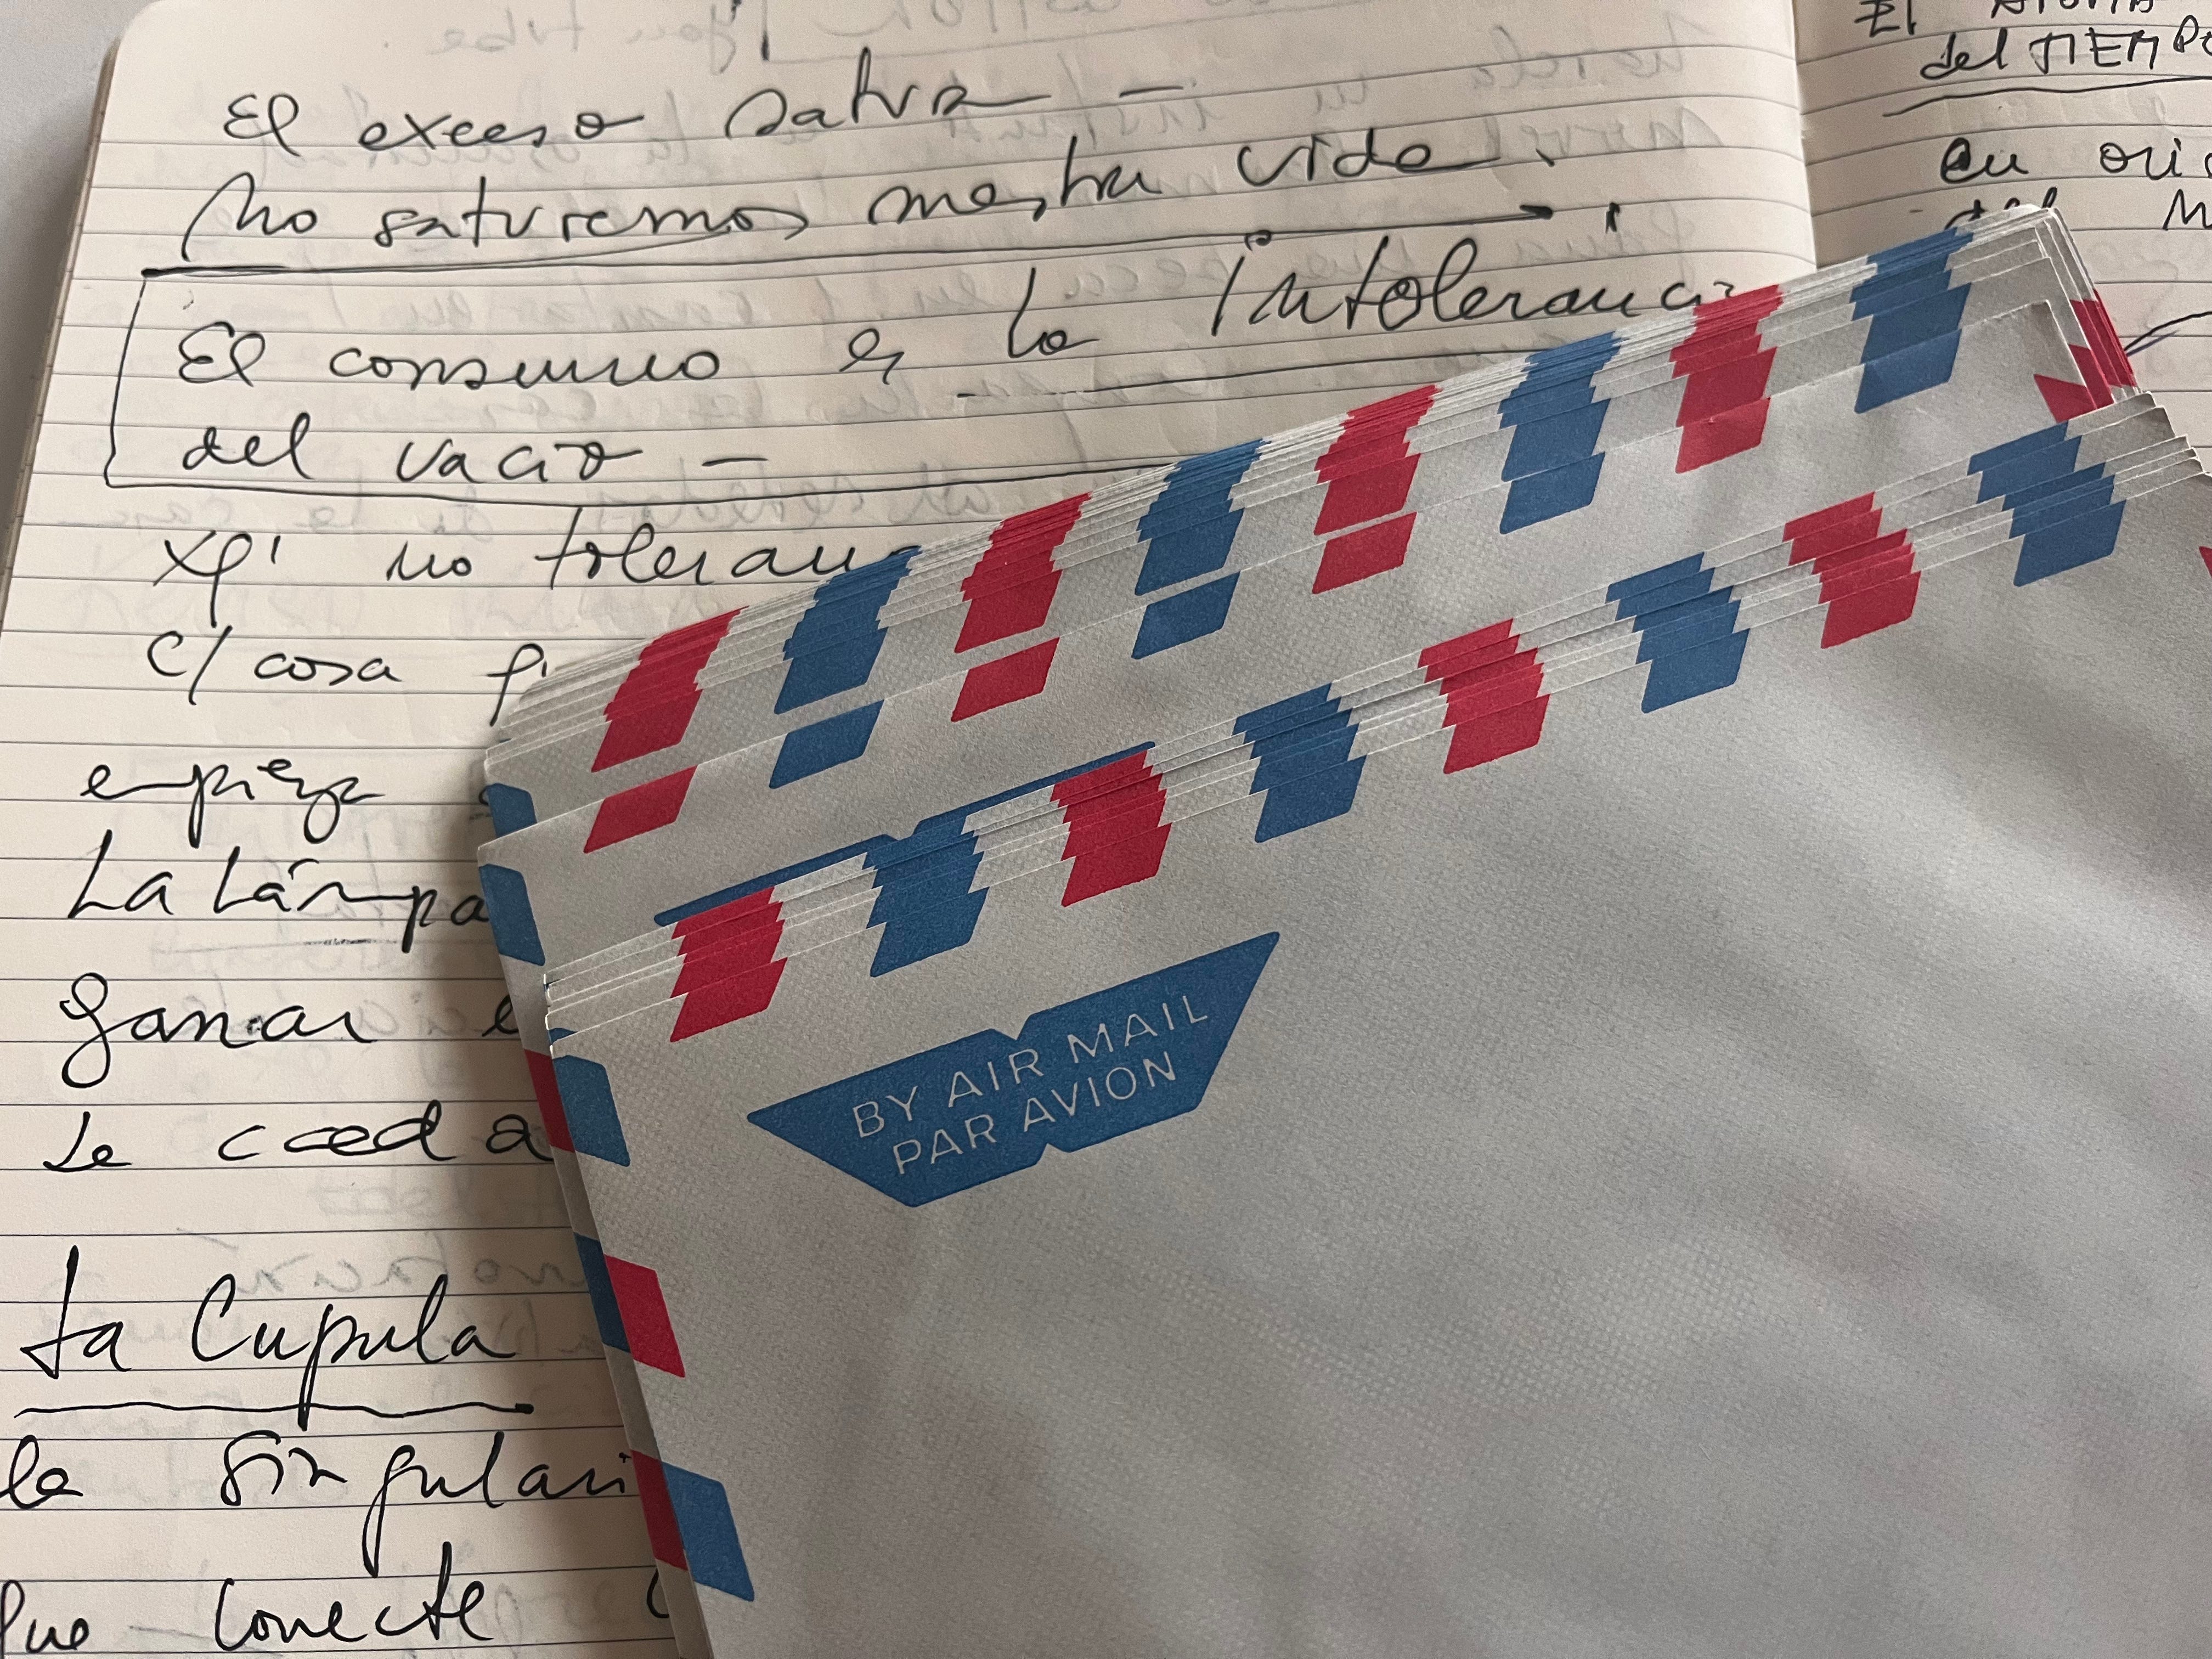 El exceso satura —
No saturemos nuestra vida.
El consumo es la Intolerancia
del vacio —
xq' no toleran
c/ cosa
empieza
La Lámpa
ganar e
se
La Cupula
la Singulari
que conecte
El
del TIEMPO
en ori
del M
BY AIR MAIL
PAR AVION